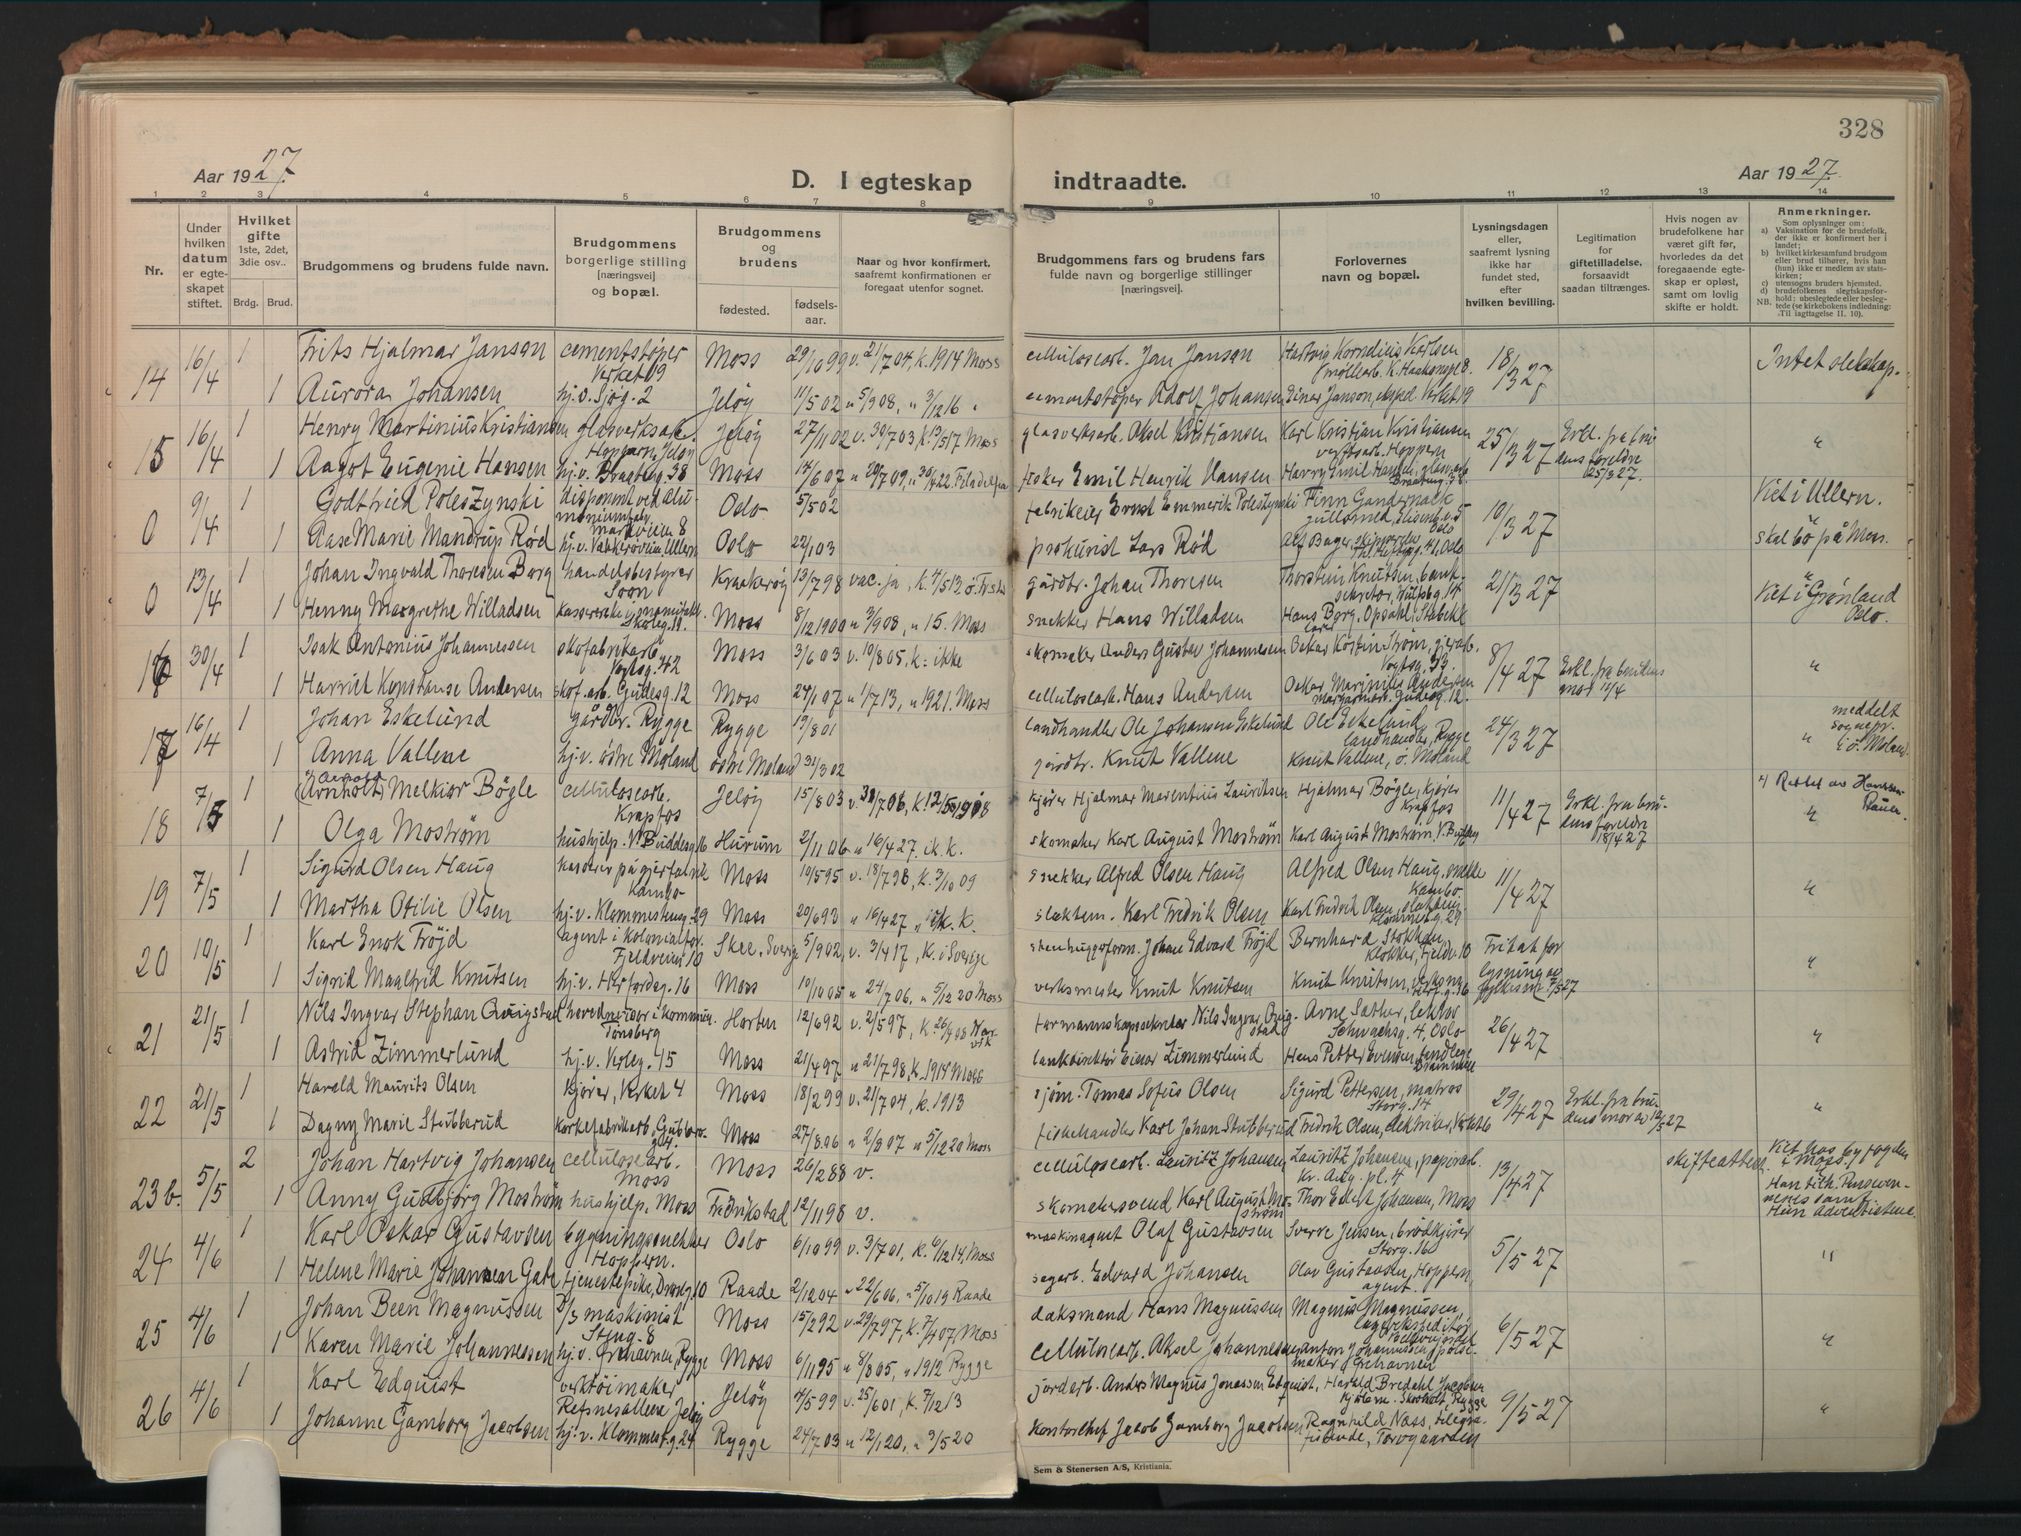 328
Aar 1927.
D. I egteskap indtraadte.
Aar 1927.
1 2 3 4 5 6 7 8 9 10 11 12 13 14
Nr.
Under hvilken datum er egteskapet stiftet.
Hvilket gifte 1ste, 2det, 3die osv..
Brdg. Brud.
Brudgommens og brudens fulde navn.
Brudgommens borgerlige stilling [næringsvei] og bopæl.
Brudgommens og brudens
fødested. fødselsaar.
Naar og hvor konfirmert. saafremt konfirmationen er foregaat utenfor sognet.
Brudgommens fars og brudens fars fulde navn og borgerlige stillinger [næringsvei].
Forlovernes navn og bopæl.
Lysningsdagen eller, saafremt lysning ikke har fundet sted, efter hvilken bevilling.
Legitimation for giftetilladelse, forsaavidt saadan tiltrænges.
Hvis nogen av brudefolkene har været gift før, hvorledes da det foregaaende egteskap er opløst, samt om lovlig skifte er holdt.
Anmerkninger.
Som oplysninger om:
a) Vaksination før de brudefolk, der ikke er konfirmert her i landet;
b) hvilket kirkesamfund brudgom eller brud tilhører, hvis han (hun) ikke er medlem av statskirken;
c) utensogns bruders hjemsted.
d) brudefolkenes slegtskapsforhold: ubeslegtede eller beslegtede (se kirkebokens indledning:
NB. Til iagttagelse II. 10).
14 16/4 1 Frits Hjalmar Janson cementstøper Verket 19 Moss 29/10 99 v. 21/7 04, k. 1914 Moss cellulosearb. Jan Janson Hartvig Kornelius Karlsen møllearb. K. Haakonspl 8. 18/3 27 Intet slektskap.
1 Aurora Johansen hj. v. Sjøg. 2 Jeløy 11/5 02 " 5/9 08, " 3/12 16 " cementstøper Adolf Johansen Einar Janson, eksped. Verket 19
15 16/4 1 Henry Martinius Kristiansen glasverksarb. Hoppern, Jeløy Jeløy 27/11 02 v. 30/7 03 k. 13/5 17 Moss glasverksarb. Aksel Kristiansen Karl Kristian Kristiansen verftsarb. Hoppern 25/3 27 Erkl. fra brudens foreldre 25/3 27. "
1 Aagot Eugenie Hansen hj. v. Skogveg 38 Moss 14/6 07 " 20/7 09, " 30/4 22 Filadelfia fisker Emil Henrik Hansen Harry Emil Hansen, glasv.arb.
0 9/4 1 Godtfried Poleszynski disponent ved aluminiumfabr. markveien 8 Oslo 5/5 02 fabrikeier Ernst Emmerik Poleszynski Finn Gundersen gullsmed, Eliseng. 5 Oslo 10/3 27 Viet i Ullern.
1 Aase Marie Mandrup Rød hj. v. Vækkerøveien Ullern Oslo 22/1 03 prokurist Lars Rød Alf Bager, skipsreder 41, Oslo skal bo på Moss.
0 13/4 1 Johan Ingvald Thoresen Borg handelsbestyrer Soon Kraakerøy 13/7 98 vac. ja, k. 4/5 13 ø. Fr.stad gårdbr. Johan Thoresen Thorstein Knutsen, banksekretær, 14 21/3 27 Viet i Grønland Oslo.
1 Henny Margrethe Willadsen kassererske i manufakt. Skoleg. 19. Moss 8/12 1900 " 3/9 08, " 15. Moss snekker Hans Willadsen Hans Borg, Opsahl, Stabekk
16 30/4 1 Isak Antonius Johannessen skofabrikarb. Vogtsg. 42 Moss 3/6 03 v. 10/8 05, k. ikke skomaker Anders Gustav Johannesen Oskar Kostin Strøm, gjerarb. Vogtsg. 39. 8/4 27 Erkl. fra brudens mor 12/4 "
1 Harriet Konstanse Andersen skof. arb. Gudesg. 12 Moss 24/1 07 " 1/7 13, " 1921. Moss cellulosearb. Hans Andersen Oskar Marinius Andersen margarinarb. Gudesg. 12.
17 16/4 1 Johan Eskelund gårdbr. Rygge Rygge 19/8 01 landhandler Ole Johansen Eskelund Ole Eskelund landhandler, Rygge 24/3 27 meddelt sognepr. i ø. Moland.
1 Anna Vallene hj. v. østre Moland østre Moland 31/3 02 gårdbr. Knut Vallene Knut Vallene, ø. Moland
18 7/5 1 Arnold (Arnholt) Melkior Bøgle cellulosearb. Krapfos Jeløy 15/8 03 v. 30/7 06, k. 12/5 1918 kjører Hjalmar Marentius Lauritsen Hjalmar Bøgle, kjører Krapfos 11/4 27 Erkl. fra brudens foreldre 18/4 27 "
1 Olga Mostrøm hushjelp. V. Buddesg. 16 Hurum 2/11 06 " 16/4 27. ik. k. skomaker Karl August Mostrøm Karl August Mostrøm
19 7/5 1 Sigurd Olsen Haug kasserer på gjerfabrik Kambo Moss 10/5 95 v. 18/7 98, k. 3/10 09 snekker Alfred Olsen Haug Alfred Olsen Haug, snekker Kambo 11/4 27 "
1 Martha Otilie Olsen hj. v. Klommesteng. 29 Moss 20/6 93 " 16/4 27 ik. k. slaktem. Karl Fredrik Olsen Karl Fredrik Olsen, slakterm. Klommesteng. 29
20 10/5 1 Karl Enok Frøjd agent i kolonialfor. Fjeldveien 10 Skee, Sverige 5/9 02, v. 3/4 17, k. i Sverige stenhuggerform. Johan Edvard Frøjd Bernhard Stokken klokker, Fjeldv. 10 Fritat for lysning av fylkesm. 7/5 27 "
1 Sigrid Magnfrid Knutsen hj. v. Herfordsg. 16 Moss 10/10 05 " 24/7 06, " 5/12 20 Moss verksmester Knut Knutsen Knut Knutsen
21 21/5 1 Nils Ingvar Stephan Quigstad hovedrevisor i kommun. Tønsberg Horten 12/6 92 v. 2/5 97, k. 26/9 08 Narvik formannskapssekretær Nils Ingvar Quigstad Arne Sæther, lektor Schwachsg. 4, Oslo 26/4 27 "
1 Astrid Zimmerlund hj. v. Kirkeg. 15 Moss 21/4 97 " 21/7 98, k. 1914 Moss bankdirektør Einar Zimmerlund Hans Petter Evensen, tandlege Drammen
22 21/5 1 Harald Maurits Olsen kjører, Verket 4 Moss 18/2 99 v. 21/7 04, k. 1913 sjøm. Tomas Sofus Olsen Sigurd Pettersen, matros Storg. 14 29/4 27 Erkl. fra brudens mor av 12/5 27 "
1 Dagny Marie Stubberud korkefabrikarb. Moss 27/8 06 " 2/8 07 " 5/12 20 Moss fiskehandler Karl Johan Stubberud Fredrik Olsen, elektriker, Verket 6
23 b. 5/5 2 Johan Hartvig Johansen cellulosearb. Moss Moss 26/2 88 v. cellulosearb. Lauritz Johansen Lauritz Johansen, papirarb. Kr. Aug. pl. 4 13/4 27 skifteattest. Viet hos byfogden i Moss. Han tilh. Pinsevennenes samf. Hun Adventistene.
1 Anny Gudbjørg Mostrøm hushjelp, Moss Fredrikstad 12/11 98 v. skomakersvend Karl August Mostrøm Thor Edvin Johansen, Moss
24 4/6 1 Karl Oskar Gustavsen bygningssnekker Hoppern. Oslo 6/10 99 v. 3/7 01, k. 6/12 14, Moss maskinagent Olaf Gustavsen Sverre Jensen, brødkjører Storg. 16 5/5 27 "
1 Helene Marie Johansen Gate tjenestepike, Dronn.g. 10 Raade 2/12 04 " 22/6 06, " 5/10 19 Raade sagarb. Edvard Johansen Olav Gustavsen, Hoppern, agent.
25 4/6 1 Johan Been Magnussen D/S maskinist Storg. 8 Moss 15/2 92 v. 29/7 97, k. 7/4 07, Moss dæksmand Hans Magnussen Magnus Magnussen, lagerekspeditør 6/5 27 "
1 Karen Marie Johannessen hj. v. Årehavnen, Rygge Moss 6/11 95 " 8/8 05, " 1912 Rygge cellulosearb. Aksel Johannesen Anton Johannessen, pølsemaker
26 4/6 1 Karl Edquist verktøimaker, Refsnesalleen Jeløy Jeløy 4/5 99 v. 25/6 01, k. 7/12 13 jordarb. Anders Magnus Jonassen Edquist, Harald Bredahl Jacobsen kjøbm. Skoholt, Rygge 9/5 27 "
1 Johanne Gamborg Jacobsen hj. v. Klommest.g. 24 Rygge 24/7 03 " 12/1 20, " 3/5 20 kontorchef Jacob Gamborg Jacobsen, Ragnhild Næss, telegrafistinde, Torvgaarden
Sem & Stenersen A/S, Kristiania.